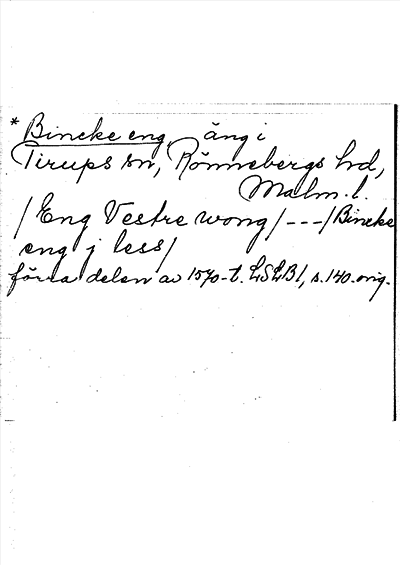 * Bincke eng, äng i
Tirups sn, Rönnebergs hd,
Malm. l.
/Eng Vestre wong/---/Bincke
eng j less/
förra delen av 1570-t. LSLB1, s. 140. orig.